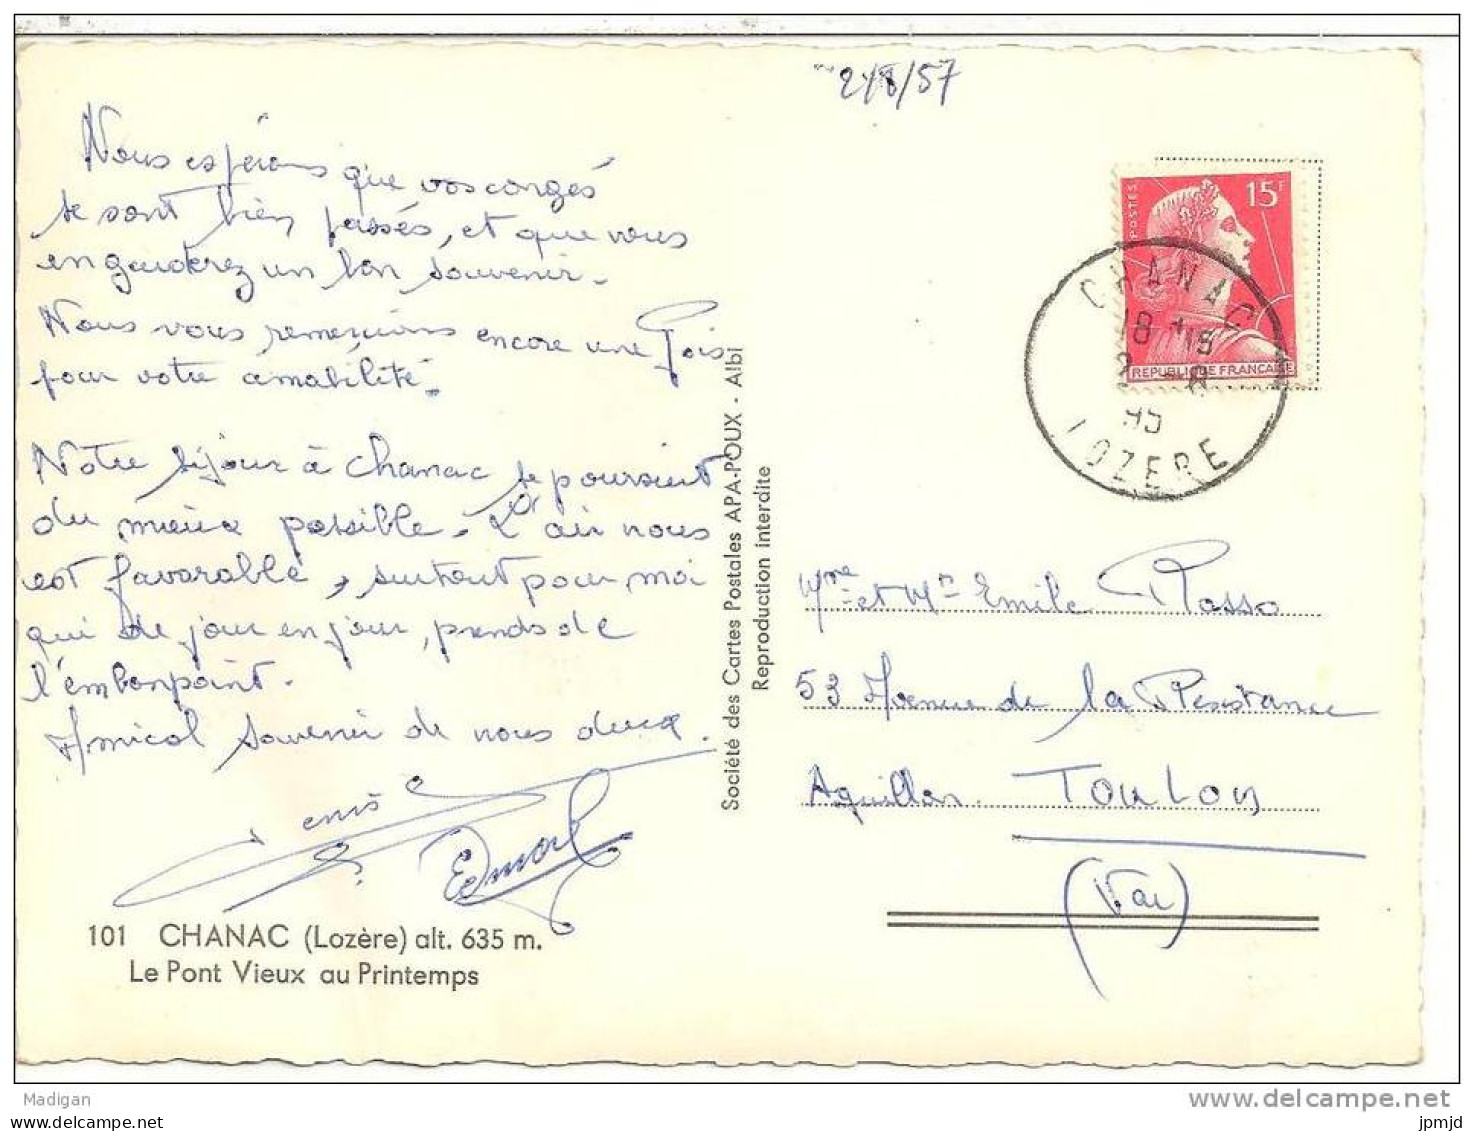 2/8/57
Nous espérons que vos congés
se sont bien passés, et que vous
en garderez un bon souvenir.
Nous vous remercions encore une fois
pour votre amabilité.
Notre séjour à Chanac se poursuit
du mieux possible. L'air nous
est favorable, surtout pour moi
qui de jour en jour, prends de
l'embonpoint.
Amical souvenir de nous deux.
Denise
Edmond
101 CHANAC (Lozère) alt. 635 m.
Le Pont Vieux au Printemps
Société des Cartes Postales APA-POUX - Albi
Reproduction interdite
POSTES
15F
REPUBLIQUE FRANÇAISE
CHANAC
18 H 15
2 - 8
LOZERE
Mme et Mr Emile Rosso
53 Avenue de la Résistance
Aguillon. Toulon
(Var)
Madigan
www.delcampe.net
Copyright
jpmjd